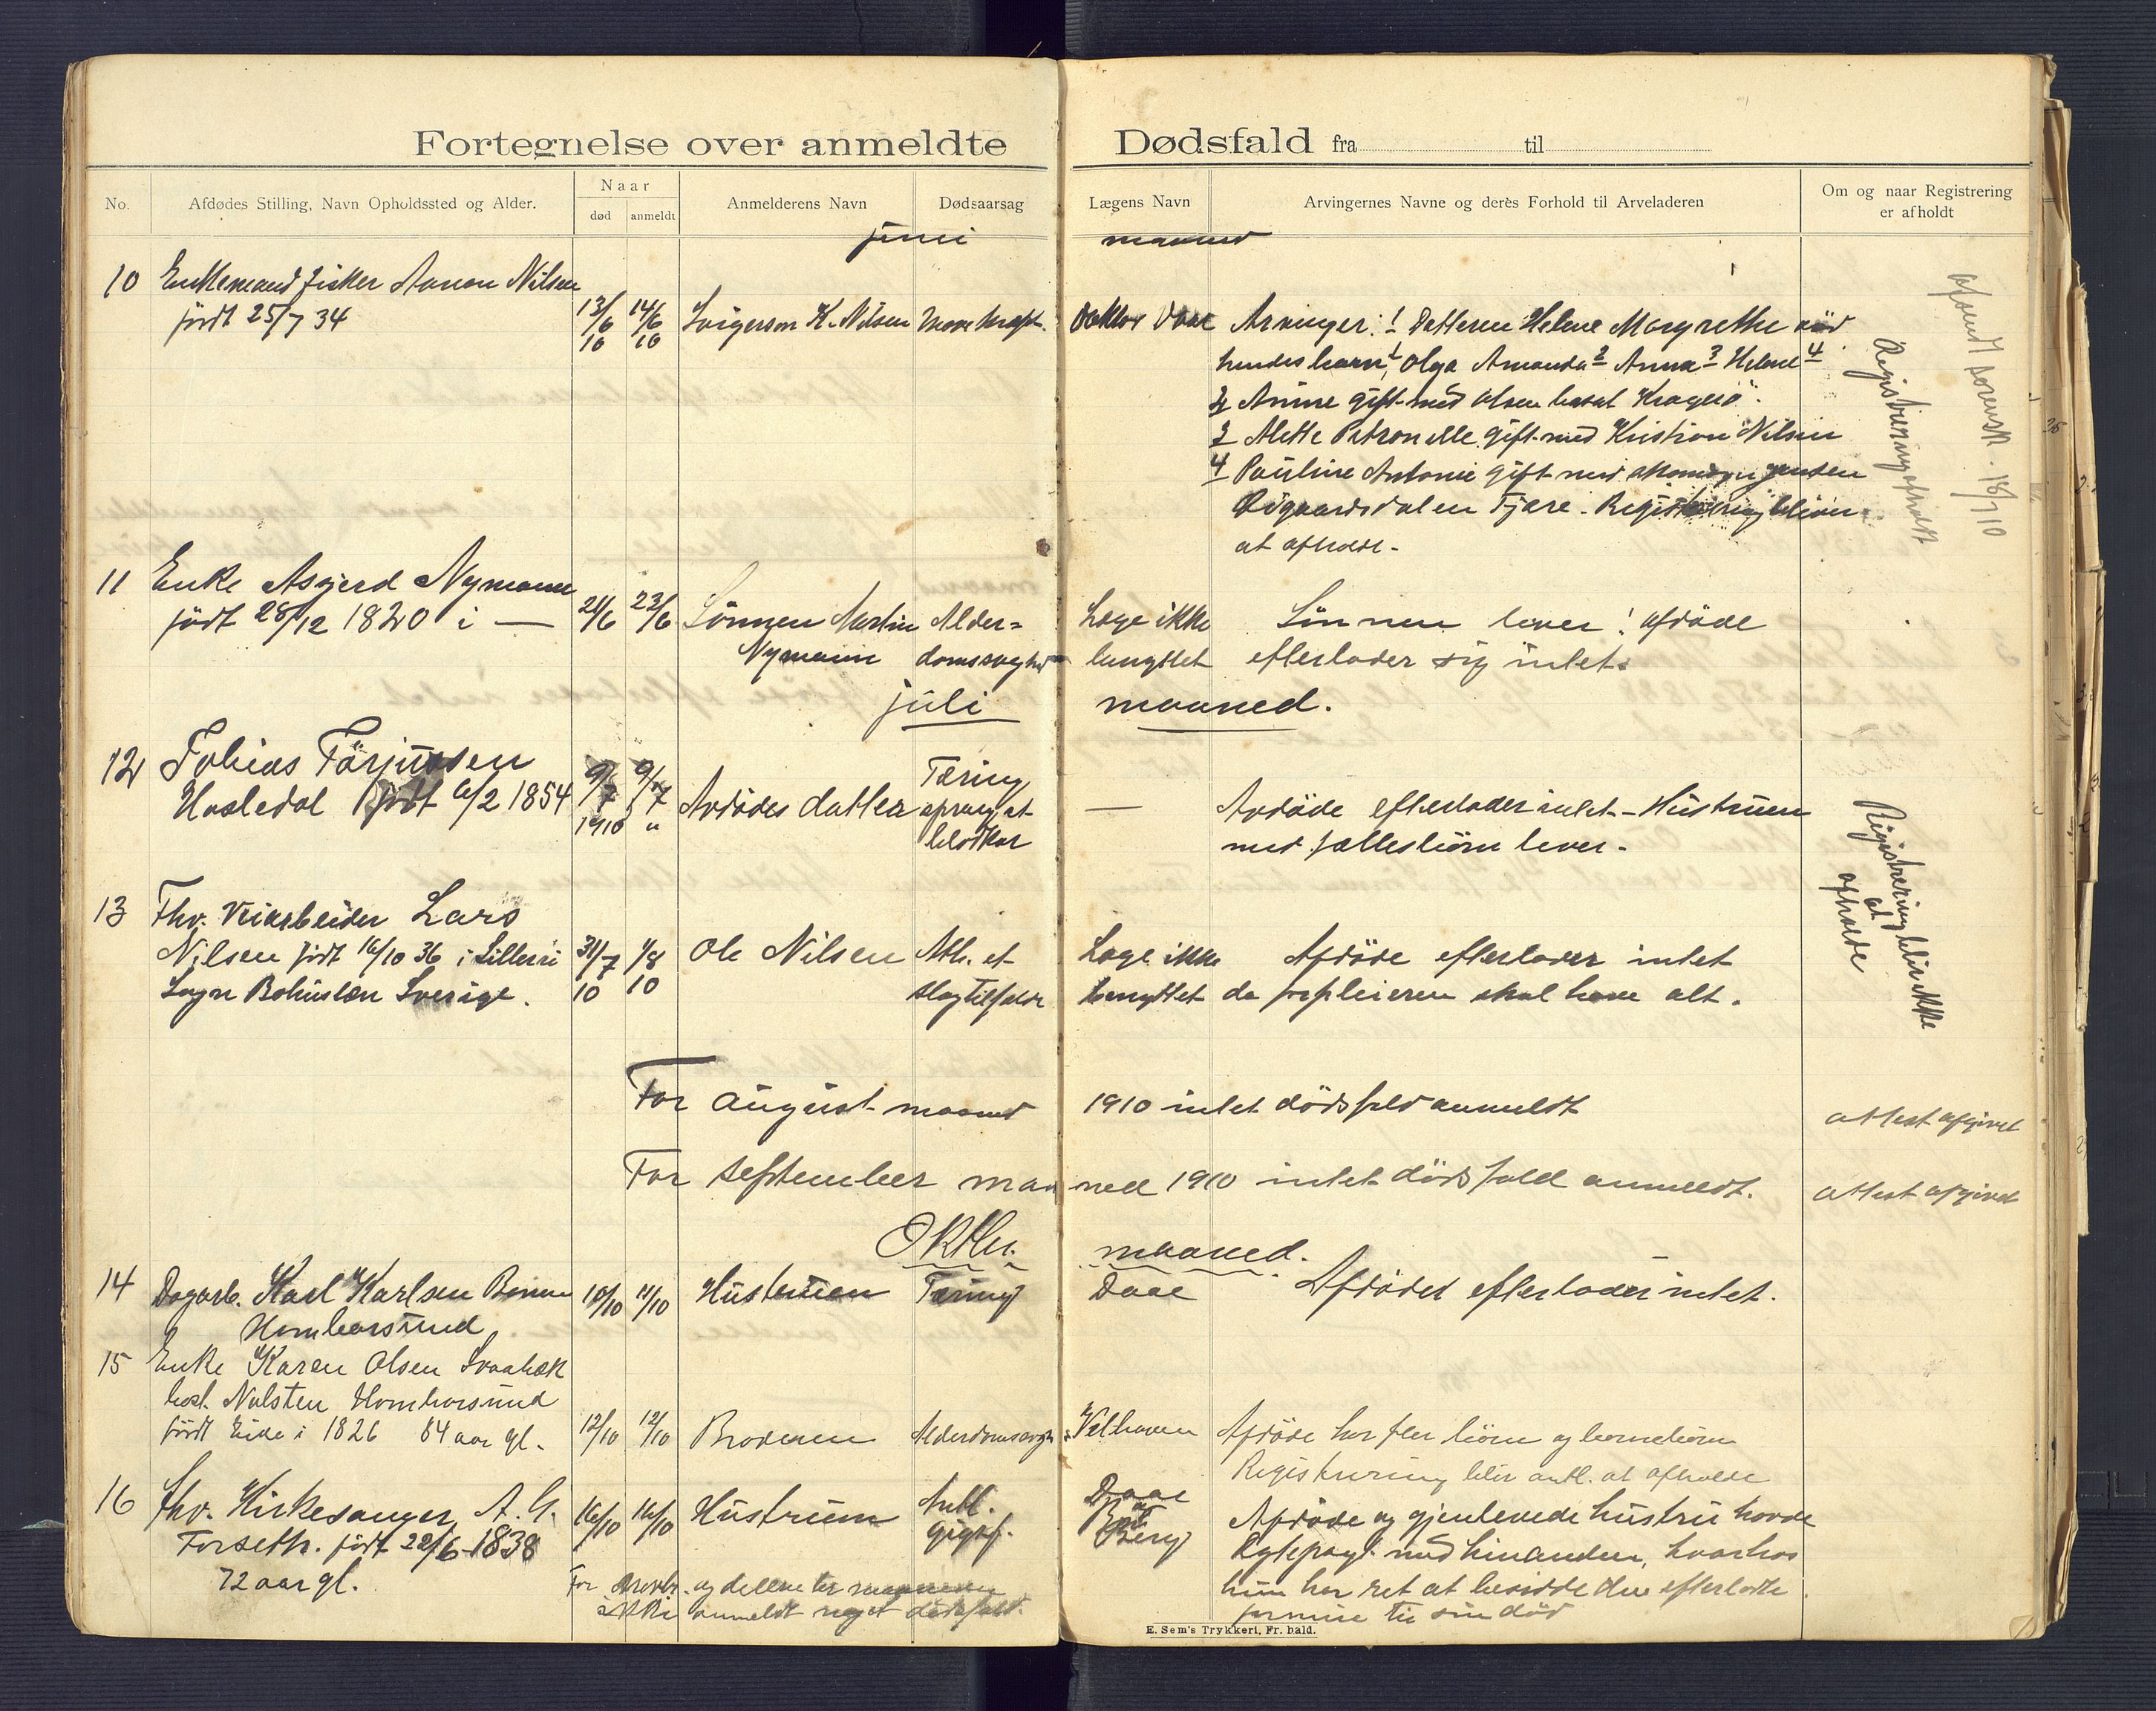 Fortegnelse over anmeldte Dødsfald fra til
No.
Afdødes Stilling, Navn Opholdssted og Alder.
Naar
død
anmeldt
Anmelderens Navn
Dødsaarsag
Lægens Navn
Arvingernes Navne og deres Forhold til Arveladeren
Om og naar Registrering
er afholdt
juni maaned
10 Enkemand fisker Aanon Nilsen
født 25/7 34
13/6 10
14/6 10
Svigerson K. Nilsen
Mavekræft.
Doktor Daae
Arvinger: 1 Datteren Helene Margrethe død
hendes barn 1 Olga Amanda 2 Anna 3 Helene 4
2 Anine gift med Olsen bosat Kragerø.
3 Alette Petronelle gift med Kristian Nilsen
4 Pauline Antonie gift med Jensen
Øigaardsdalen Fjære. Registrering bliver
at afholde.
Registrering afholdt
afsendt sorensk. 18/7 10
11 Enke Asgjerd Nymann
født 28/12 1820 i —
21/6
23/6
Sønnen Martin
Nymann
Alder=
domssvaghed
Læge ikke
benyttet
Sønnen lever! afdøde
efterlader sig intet.
juli maaned.
12 Tobias Tarjussen
Hasledal født 6/2 1854
9/7 1910
9/7 "
Avdødes datter
Tæring
sprunget
blodkar
—
Avdøde efterlader intet - Hustruen
med fællesbørn lever.
Registrering blir ikke
at
afholde
13 Fhv. Veiarbeider Lars
Nilsen født 16/10 36 i Lilleri
Sogn Bohuslæn Sverige.
31/7 10
1/8 10
Ole Nilsen
Atb. et
slagtilfælde
Læge ikke
benyttet
Afdøde efterlader intet
da forpleieren skal have alt.
For august maaned 1910 intet dødsfald anmeldt
attest afgivet
For september maaned 1910 intet dødsfald anmeldt.
attest afgivet
Oktbr. maaned.
14 Dagarb. Karl Karlsen
Homborsund
10/10
11/10
Hustruen
Tæring
Daae
Afdødes efterlader intet.
15 Enke Karen Olsen Svaabæk
bosat Homborsund
født Eide i 1826 84 aar gl.
12/10
12/10
Broderen
Alderdomssvagh.
Velhaven
Afdøde har fler børn og børnebørn
Registrering blir antl. at afholde
16 fhv. Kirkesanger A. G.
Forseth. født 22/6-1838
72 aar gl.
16/10
16/10
Hustruen
Antl.
gigtf.
Daae
og
Berg
Afdøde og gjenlevende hustru havde
Ægtepagt med hinanden, hvorhos
hun har ret at besidde den efterladte
formue til sin død
For novbr. og december maaned
ikke anmeldt noget dødsfald.
E. Sem's Trykkeri, Fr. hald.